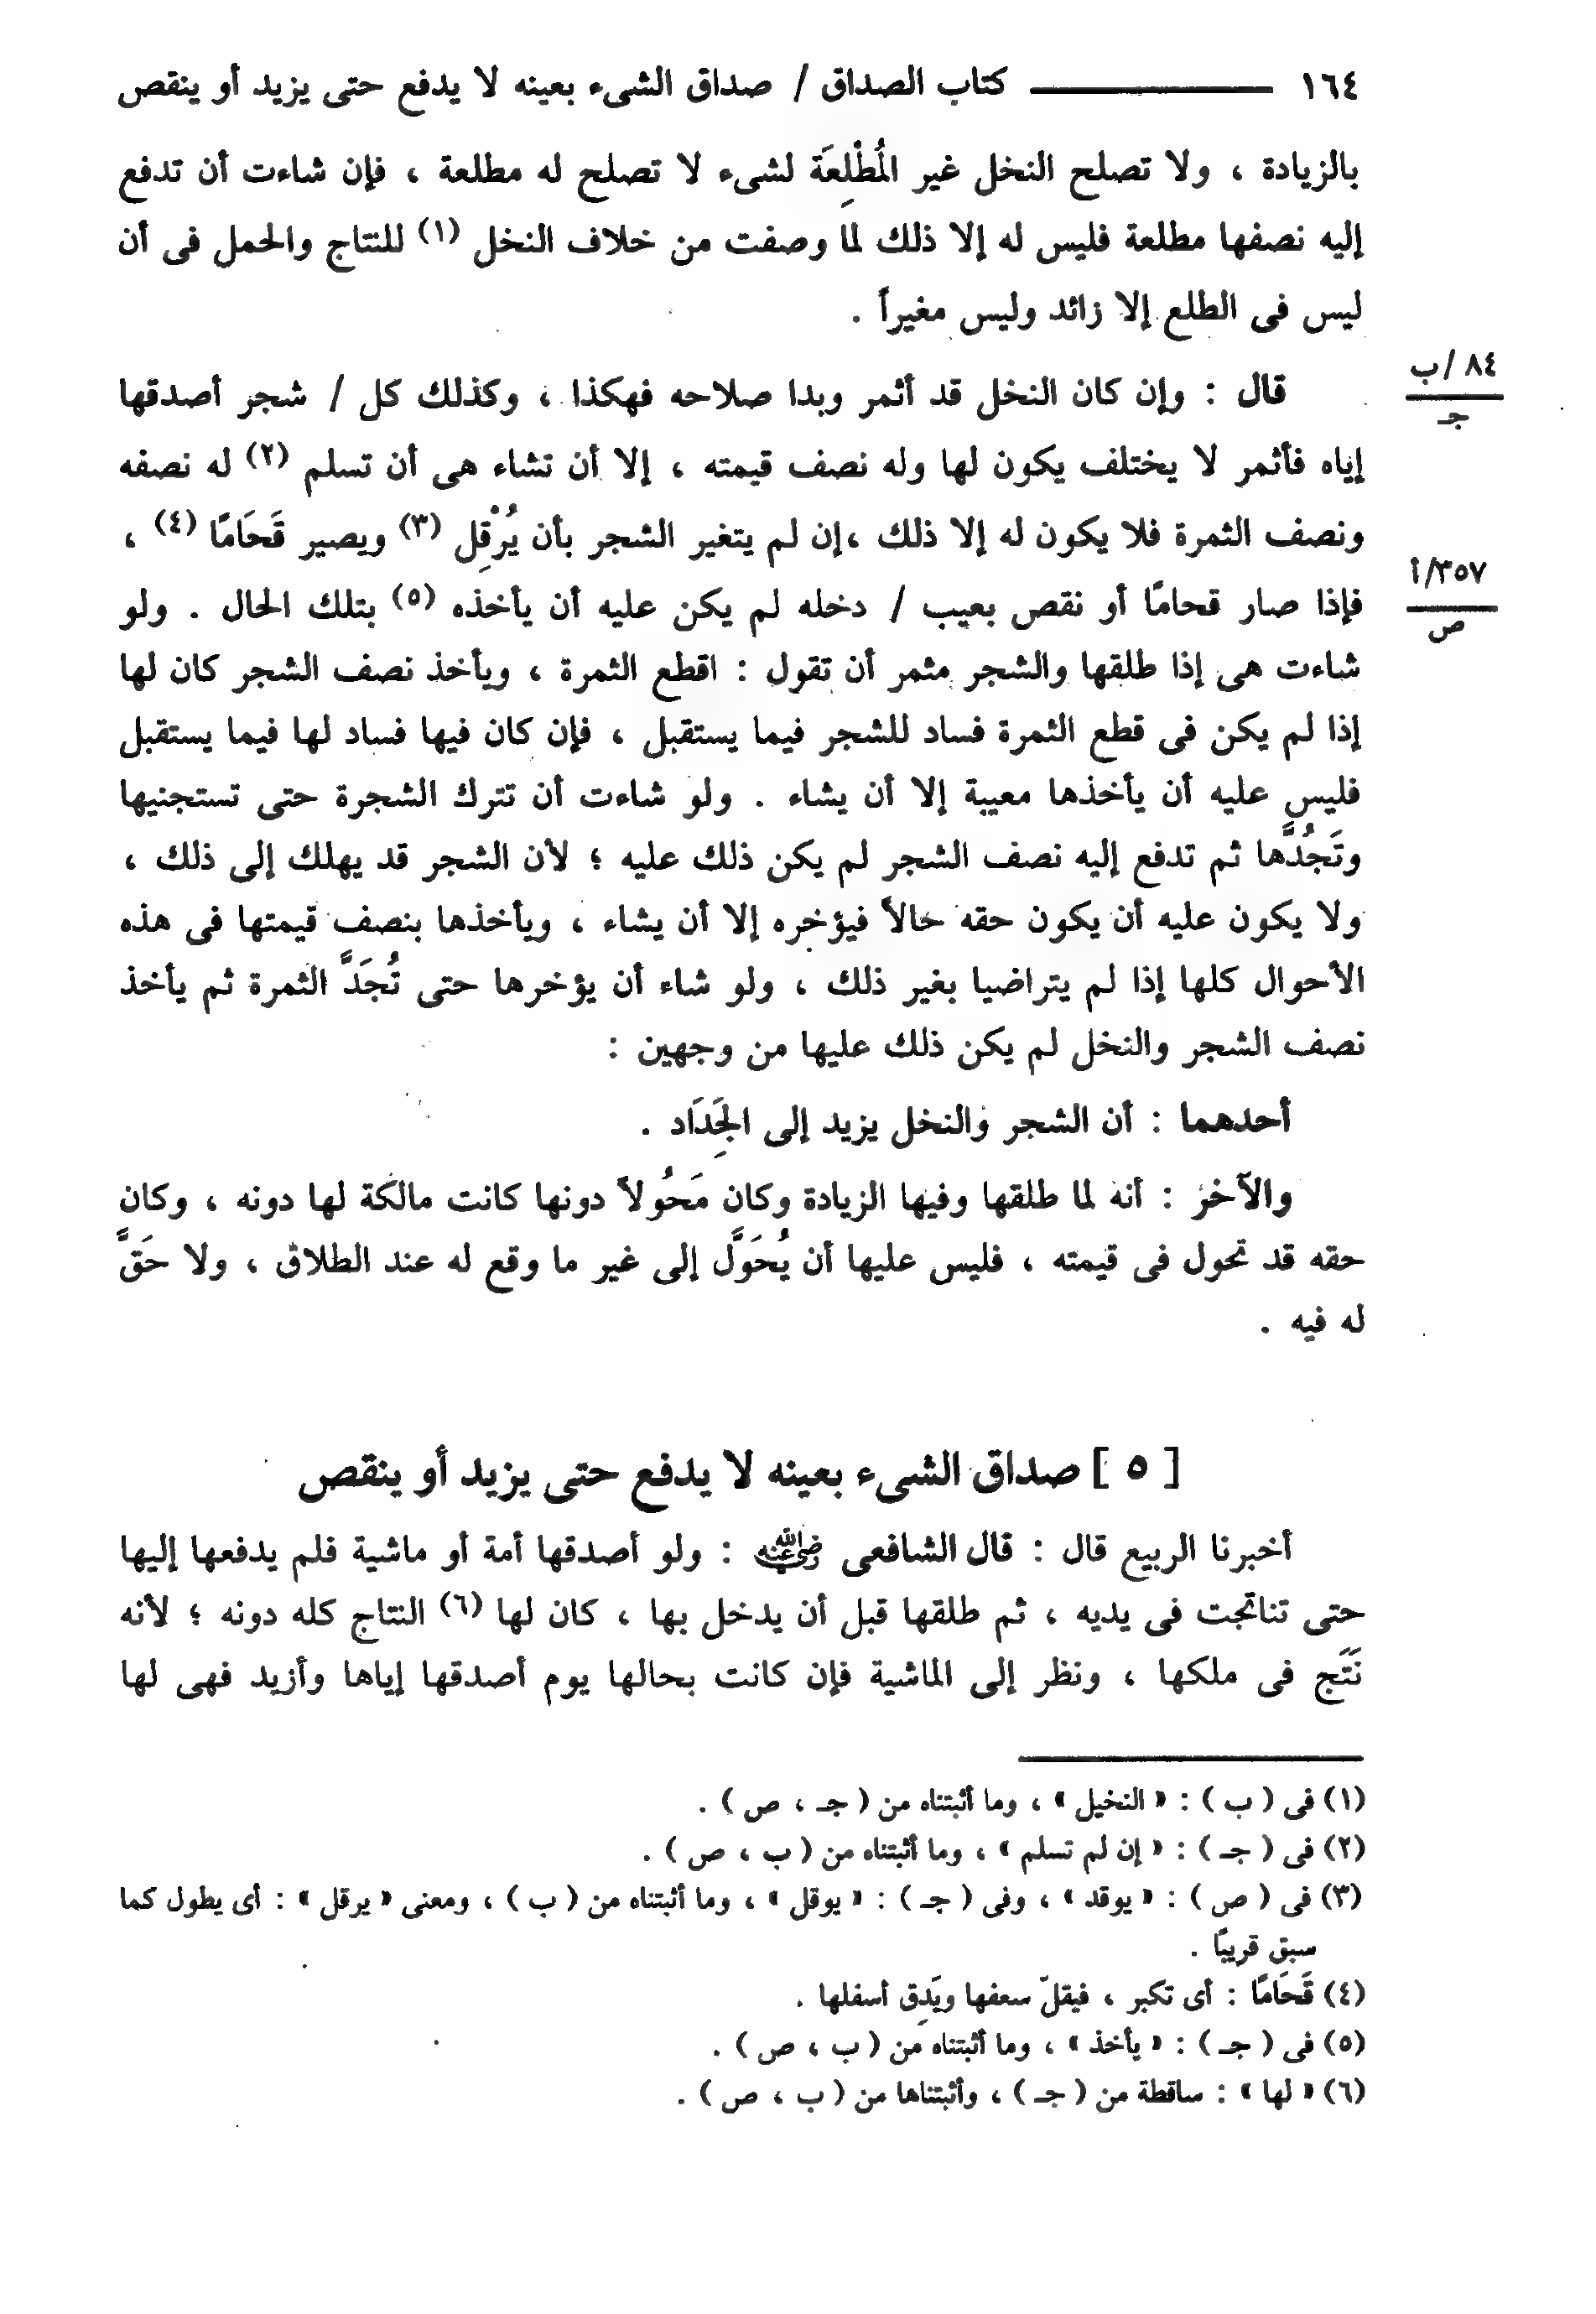 ١٦٤ ــــــــــــ كتاب الصداق / صداق الشىء بعينه لا يدفع حتى يزيد أو ينقص
بالزيادة ، ولا تصلح النخل غير المُطْلِعَة لشىء لا تصلح له مطلعة ، فإن شاءت أن تدفع
إليه نصفها مطلعة فليس له إلا ذلك لما وصفت من خلاف النخل (١) للنتاج والحمل فى أن
ليس فى الطلع إلا زائد وليس مغيراً .
٨٤ /ب
جـ
قال : وإن كان النخل قد أثمر وبدا صلاحه فهكذا ، وكذلك كل / شجر أصدقها
إياه فأثمر لا يختلف يكون لها وله نصف قيمته ، إلا أن تشاء هى أن تسلم (٢) له نصفه
ونصف الثمرة فلا يكون له إلا ذلك ،إن لم يتغير الشجر بأن يُرْقِل (٣) ويصير قَحَامًا (٤) ،
٣٥٧/أ
ص
فإذا صار قحامًا أو نقص بعيب / دخله لم يكن عليه أن يأخذه (٥) بتلك الحال . ولو
شاءت هى إذا طلقها والشجر مثمر أن تقول : اقطع الثمرة ، ويأخذ نصف الشجر كان لها
إذا لم يكن فى قطع الثمرة فساد للشجر فيما يستقبل ، فإن كان فيها فساد لها فيما يستقبل
فليس عليه أن يأخذها معيبة إلا أن يشاء . ولو شاءت أن تترك الشجرة حتى تستجنيها
وتَجُدَّها ثم تدفع إليه نصف الشجر لم يكن ذلك عليه ؛ لأن الشجر قد يهلك إلى ذلك ،
ولا يكون عليه أن يكون حقه حالاً فيؤخره إلا أن يشاء ، ويأخذها بنصف قيمتها فى هذه
الأحوال كلها إذا لم يتراضيا بغير ذلك ، ولو شاء أن يؤخرها حتى تُجَدَّ الثمرة ثم يأخذ
نصف الشجر والنخل لم يكن ذلك عليها من وجهين :
أحدهما : أن الشجر والنخل يزيد إلى الجَِدَاد .
والآخر : أنه لما طلقها وفيها الزيادة وكان مَحُولاً دونها كانت مالكة لها دونه ، وكان
حقه قد تحول فى قيمته ، فليس عليها أن يُحَوَّل إلى غير ما وقع له عند الطلاق ، ولا حَقَّ
له فيه .
[ ٥ ] صداق الشىء بعينه لا يدفع حتى يزيد أو ينقص
أخبرنا الربيع قال : قال الشافعى رضي الله عنه : ولو أصدقها أمة أو ماشية فلم يدفعها إليها
حتى تناتجت فى يديه ، ثم طلقها قبل أن يدخل بها ، كان لها (٦) النتاج كله دونه ؛ لأنه
نَتَج فى ملكها ، ونظر إلى الماشية فإن كانت بحالها يوم أصدقها إياها وأزيد فهى لها
(١) فى ( ب ) : « النخيل » ، وما أثبتناه من ( جـ ، ص ) .
(٢) فى ( جـ ) : « إن لم تسلم » ، وما أثبتناه من ( ب ، ص ) .
(٣) فى ( ص ) : « يوقد » ، وفى ( جـ ) : « يوقل » ، وما أثبتناه من ( ب ) ، ومعنى « يرقل » : أى يطول كما
سبق قريبًا .
(٤) قَحَامًا : أى تكبر ، فيقلّ سعفها ويَدِق أسفلها .
(٥) فى ( جـ ) : « يأخذ » ، وما أثبتناه من ( ب ، ص ) .
(٦) « لها » : ساقطة من ( جـ ) ، وأثبتناها من ( ب ، ص ) .